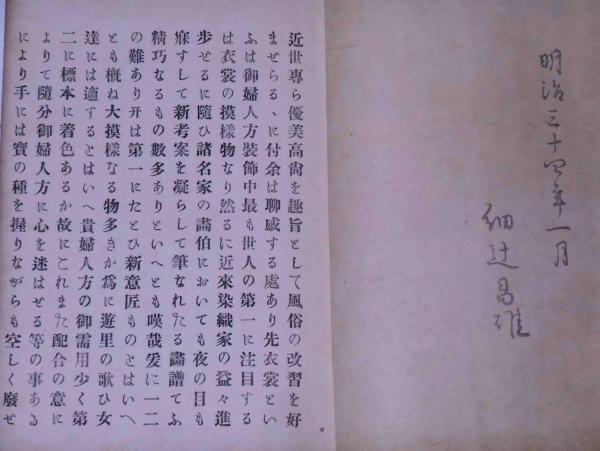 明治三十四年一月
細辻昌雄
近世專ら優美高尙を趣旨として風俗の改習を好
ませらるゝに付余は聊感する處あり先衣裳とい
ふは御婦人方裝飾中最も世人の第一に注目する
は衣裳の摸樣物なり然るに近來染織家の益々進
步せるに隨ひ諸名家の畵伯においても夜の目も
寐すして新考案を凝らして筆なれたる畵譜てふ
精巧なるもの數多ありといへとも嘆哉爰に一二
の難あり开は第一にたとひ新意匠ものとはいへ
とも槪ね大摸樣なる物多きか爲に遊里の歌ひ女
達には適するとはいへ貴婦人方の御需用少く第
二に標本に着色あるか故にこれまた配合の意に
よりて隨分御婦人方に心を迷はせる等の事ある
により手には寶の種を握りながらも空しく廢せ